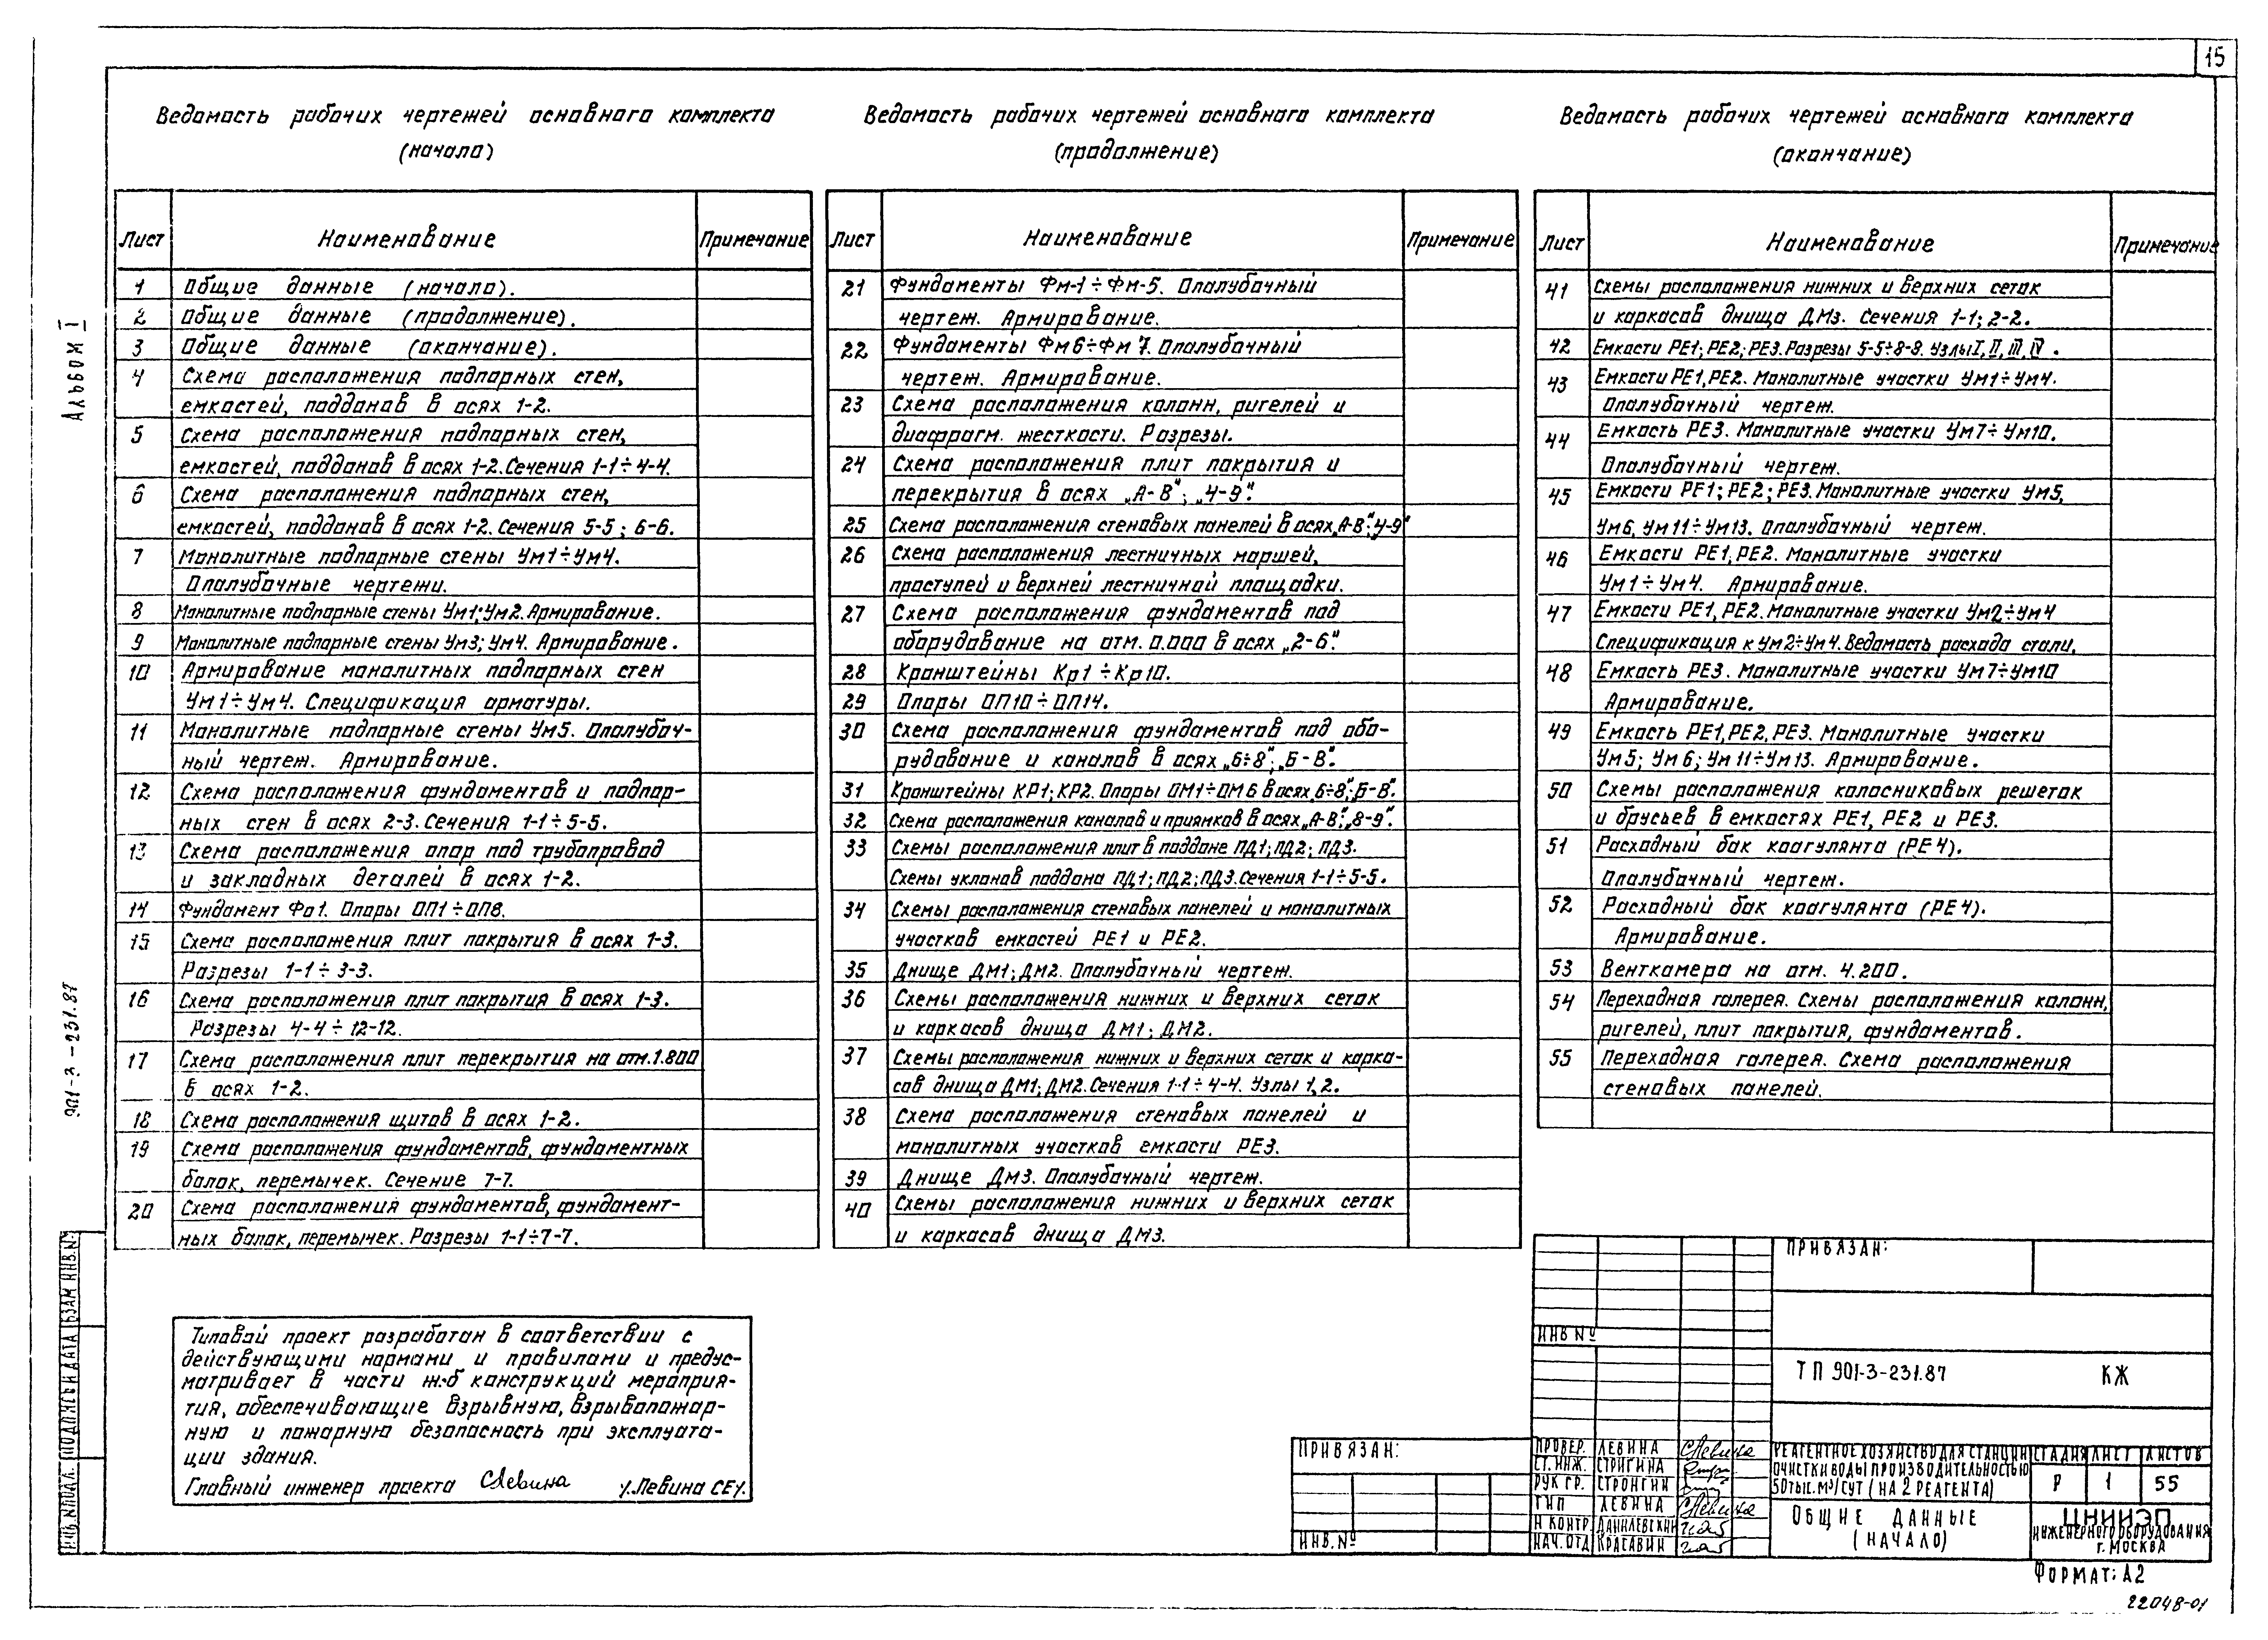 15
Ведомость рабочих чертежей основного комплекта
(начало)
Лист Наименование Примечание
1 Общие данные (начало).
2 Общие данные (продолжение).
3 Общие данные (окончание).
4 Схема расположения подпорных стен,
емкостей, поддонов в осях 1-2.
5 Схема расположения подпорных стен,
емкостей, поддонов в осях 1-2. Сечения 1-1÷4-4.
6 Схема расположения подпорных стен,
емкостей, поддонов в осях 1-2. Сечения 5-5; 6-6.
7 Монолитные подпорные стены Ум1÷Ум4.
Опалубочные чертежи.
8 Монолитные подпорные стены Ум1; Ум2. Армирование.
9 Монолитные подпорные стены Ум3; Ум4. Армирование.
10 Армирование монолитных подпорных стен
Ум1÷Ум4. Спецификация арматуры.
11 Монолитные подпорные стены Ум5. Опалубоч-
ный чертеж. Армирование.
12 Схема расположения фундаментов и подпор-
ных стен в осях 2-3. Сечения 1-1÷5-5.
13 Схема расположения опор под трубопровод
и закладных деталей в осях 1-2.
14 Фундамент Фо1. Опоры ОП1÷ОП8.
15 Схема расположения плит покрытия в осях 1-3.
Разрезы 1-1÷3-3.
16 Схема расположения плит покрытия в осях 1-3.
Разрезы 4-4÷12-12.
17 Схема расположения плит перекрытия на отм. 1.800
в осях 1-2.
18 Схема расположения щитов в осях 1-2.
19 Схема расположения фундаментов, фундаментных
балок, перемычек. Сечение 7-7.
20 Схема расположения фундаментов, фундамент-
ных балок, перемычек. Разрезы 1-1÷7-7.
Ведомость рабочих чертежей основного комплекта
(продолжение)
Лист Наименование Примечание
21 Фундаменты Фм-1÷Фм-5. Опалубочный
чертеж. Армирование.
22 Фундаменты Фм6÷Фм7. Опалубочный
чертеж. Армирование.
23 Схема расположения колонн, ригелей и
диафрагм жесткости. Разрезы.
24 Схема расположения плит покрытия и
перекрытия в осях „А-В"; „4-9".
25 Схема расположения стеновых панелей в осях „А-В"; „4-9"
26 Схема расположения лестничных маршей,
проступей и верхней лестничной площадки.
27 Схема расположения фундаментов под
оборудование на отм. 0.000 в осях „2-6".
28 Кронштейны Кр1÷Кр10.
29 Опоры ОП10÷ОП14.
30 Схема расположения фундаментов под обо-
рудование и каналов в осях „6÷8"; „Б-В".
31 Кронштейны КР1; КР2. Опоры ОМ1÷ОМ6 в осях „6÷8"; „Б-В".
32 Схема расположения каналов и приямков в осях „А-В"; „8-9".
33 Схемы расположения плит в поддоне ПД1; ПД2; ПД3.
Схемы уклонов поддона ПД1; ПД2; ПД3. Сечения 1-1÷5-5.
34 Схемы расположения стеновых панелей и монолитных
участков емкостей РЕ1 и РЕ2.
35 Днище ДМ1; ДМ2. Опалубочный чертеж.
36 Схемы расположения нижних и верхних сеток
и каркасов днища ДМ1; ДМ2.
37 Схемы расположения нижних и верхних сеток и карка-
сов днища ДМ1; ДМ2. Сечения 1-1÷4-4. Узлы 1, 2.
38 Схема расположения стеновых панелей и
монолитных участков емкости РЕ3.
39 Днище ДМ3. Опалубочный чертеж.
40 Схемы расположения нижних и верхних сеток
и каркасов днища ДМ3.
Ведомость рабочих чертежей основного комплекта
(окончание)
Лист Наименование Примечание
41 Схемы расположения нижних и верхних сеток
и каркасов днища ДМ3. Сечения 1-1; 2-2.
42 Емкости РЕ1; РЕ2; РЕ3. Разрезы 5-5÷8-8. Узлы I, II, III, IV.
43 Емкости РЕ1, РЕ2. Монолитные участки Ум1÷Ум4.
Опалубочный чертеж.
44 Емкость РЕ3. Монолитные участки Ум7÷Ум10.
Опалубочный чертеж.
45 Емкости РЕ1; РЕ2; РЕ3. Монолитные участки Ум5,
Ум6, Ум11÷Ум13. Опалубочный чертеж.
46 Емкости РЕ1, РЕ2. Монолитные участки
Ум1÷Ум4. Армирование.
47 Емкости РЕ1, РЕ2. Монолитные участки Ум2÷Ум4
Спецификация к Ум2÷Ум4. Ведомость расхода стали.
48 Емкость РЕ3. Монолитные участки Ум7÷Ум10
Армирование.
49 Емкость РЕ1, РЕ2, РЕ3. Монолитные участки
Ум5; Ум6; Ум11÷Ум13. Армирование.
50 Схемы расположения колосниковых решеток
и брусьев в емкостях РЕ1, РЕ2 и РЕ3.
51 Расходный бак коагулянта (РЕ4).
Опалубочный чертеж.
52 Расходный бак коагулянта (РЕ4).
Армирование.
53 Венткамера на отм. 4.200.
54 Переходная галерея. Схемы расположения колонн,
ригелей, плит покрытия, фундаментов.
55 Переходная галерея. Схема расположения
стеновых панелей.
Альбом I
901-3-231.87
ИНВ. № ПОДЛ. ПОДПИСЬ И ДАТА ВЗАМ ИНВ. №
Типовой проект разработан в соответствии с
действующими нормами и правилами и предус-
матривает в части ж-б конструкций мероприя-
тия, обеспечивающие взрывную, взрывопожар-
ную и пожарную безопасность при эксплуата-
ции здания.
Главный инженер проекта СЛевина /Левина СЕ/.
ПРИВЯЗАН:
ИНВ. №
ПРИВЯЗАН:
ИНВ №
ТП 901-3-231.87 КЖ
ПРОВЕР. ЛЕВИНА СЛевина
СТ. ИНЖ. СТРИГИНА
РУК ГР. СТРОНГИН
ГИП ЛЕВИНА СЛевина
Н КОНТР. ДАНИЛЕВСКИЙ
НАЧ. ОТД КРАСАВИН
РЕАГЕНТНОЕ ХОЗЯЙСТВО ДЛЯ СТАНЦИИ
ОЧИСТКИ ВОДЫ ПРОИЗВОДИТЕЛЬНОСТЬЮ
50 ТЫС. М³/СУТ (НА 2 РЕАГЕНТА)
СТАДИЯ ЛИСТ ЛИСТОВ
Р 1 55
ОБЩИЕ ДАННЫЕ
(НАЧАЛО)
ЦНИИЭП
ИНЖЕНЕРНОГО ОБОРУДОВАНИЯ
г. МОСКВА
ФОРМАТ: А2
22048-01